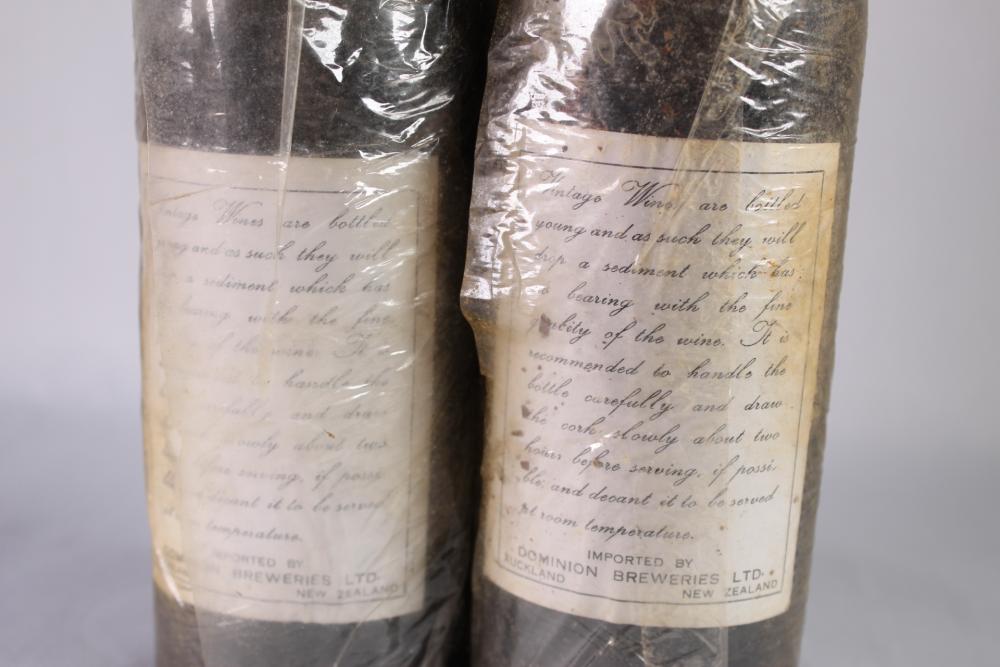 Wines are bottled
and as such they will
a sediment which has
bearing with the fine
of the wine. It is
to handle the
and draw
owly about two
fore serving, if possi
decant it to be served
temperature.
IMPORTED BY
ION BREWERIES LTD.
NEW ZEALAND
Vintage Wines are bottled
young and as such they will
drop a sediment which has
no bearing with the fine
of the wine. It is
recommended to handle the
bottle carefully and draw
the cork slowly about two
hours before serving, if possi-
ble, and decant it to be served
at room temperature.
IMPORTED BY
DOMINION BREWERIES LTD.
AUCKLAND NEW ZEALAND